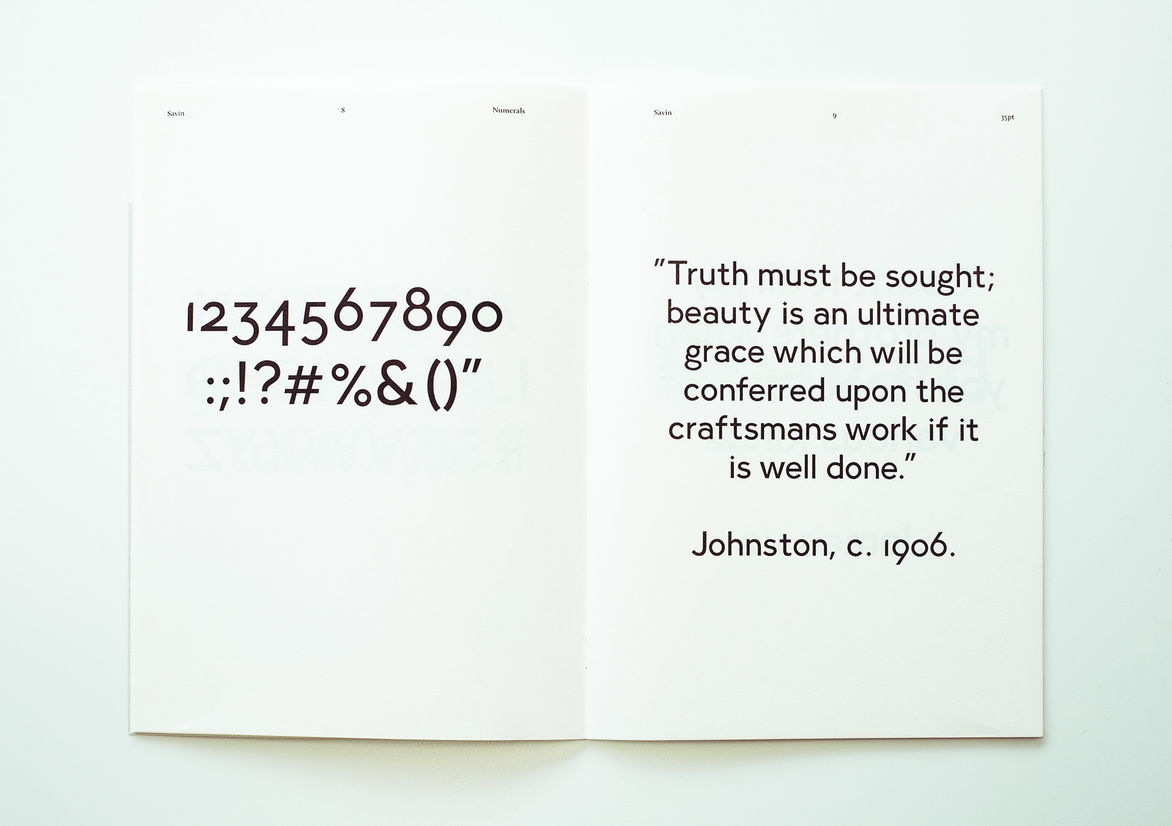 Savin 8 Numerals
1234567890
:;!?#%&()”
Savin 9 35pt
”Truth must be sought;
beauty is an ultimate
grace which will be
conferred upon the
craftsmans work if it
is well done.”
Johnston, c. 1906.